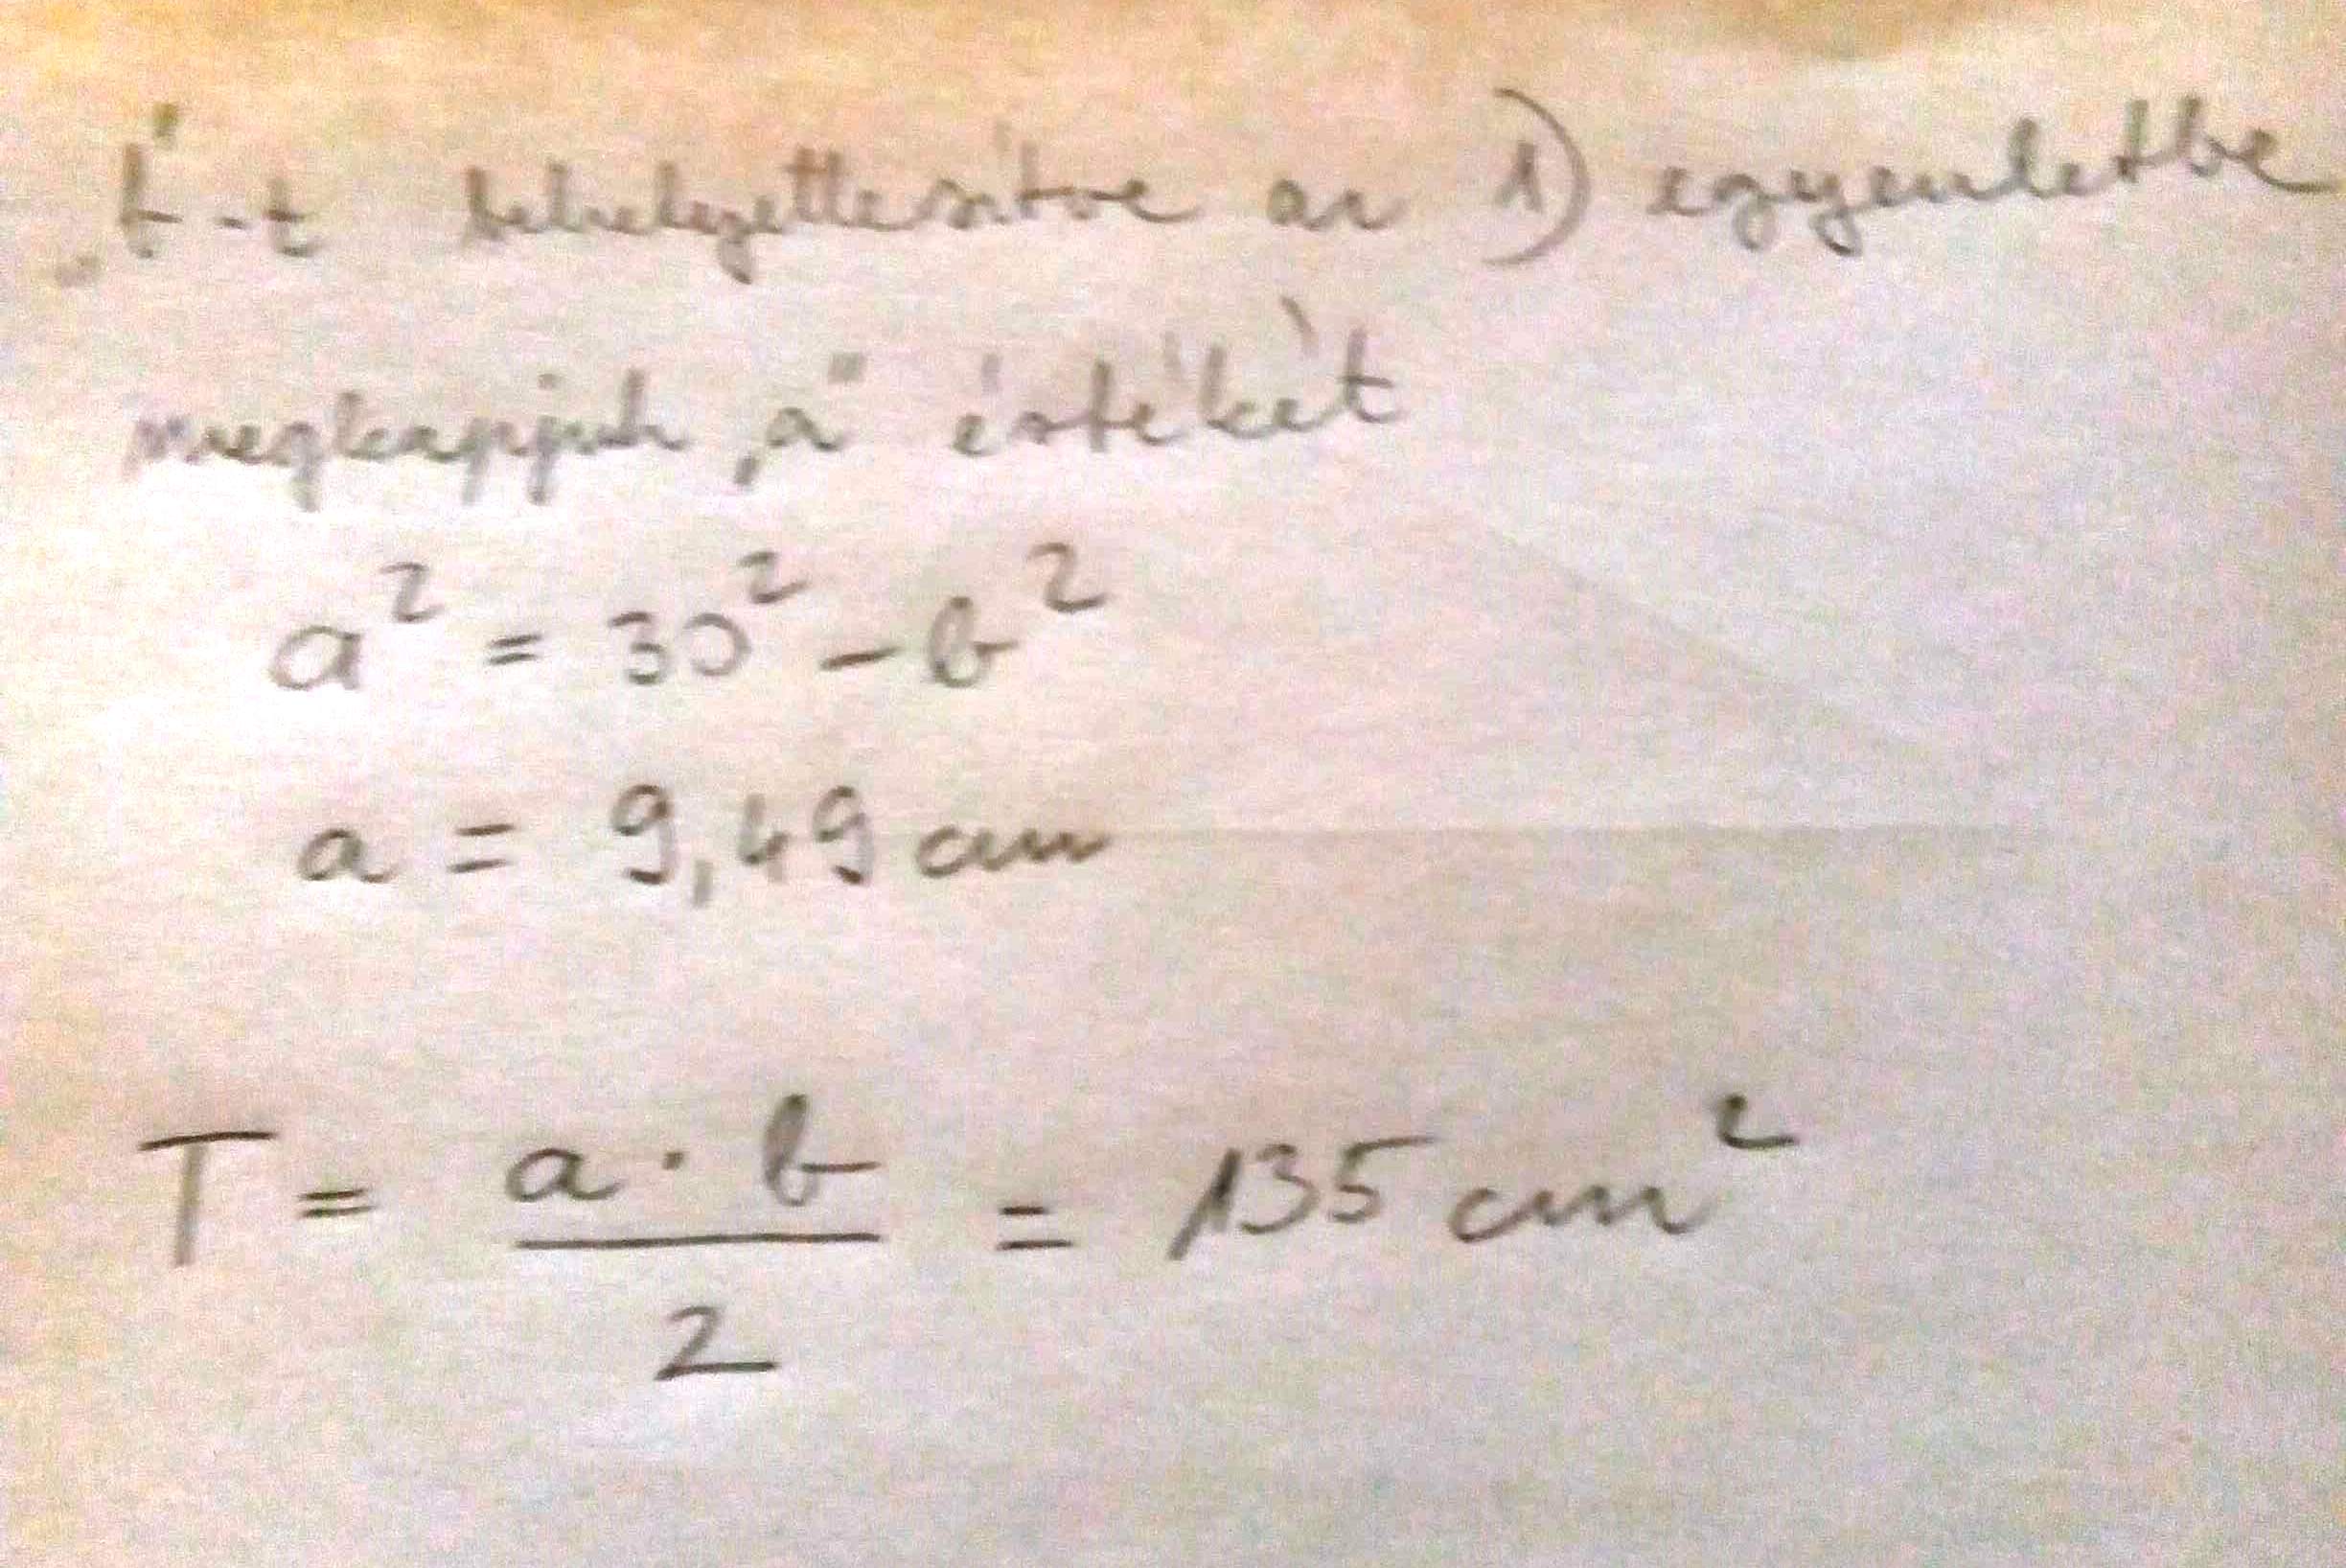 „b"-t behelyettesítve az 1) egyenletbe
megkapjuk „a" értékét
a² = 30² - b²
a = 9,49 cm
T = \frac{a · b}{2} = 135 cm²